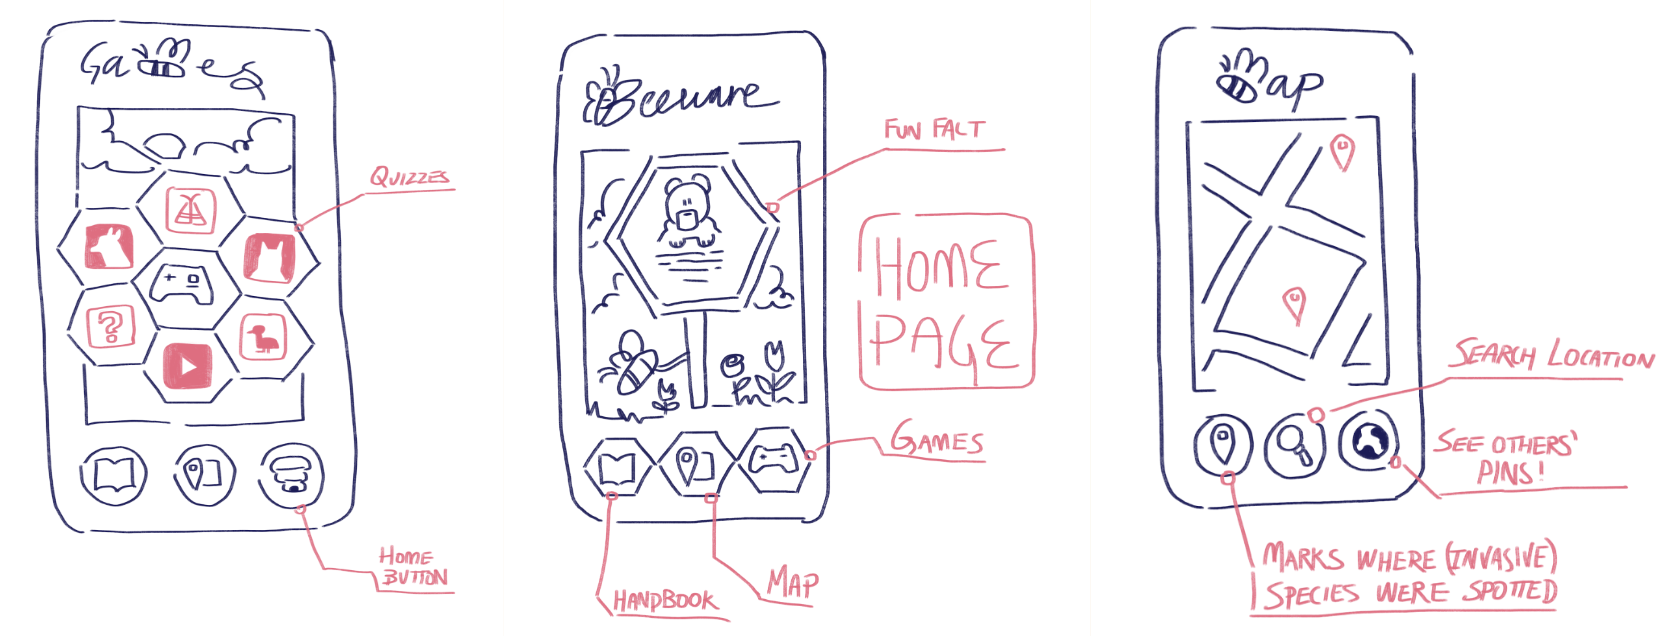 Games
QUIZZES
?
HOME
BUTTON
Beeware
FUN FALT
HOME
PAGE
GAMES
HANDBOOK
MAP
Map
SEARCH LOCATION
SEE OTHERS'
PINS!
MARKS WHERE (INVASIVE)
SPECIES WERE SPOTTED